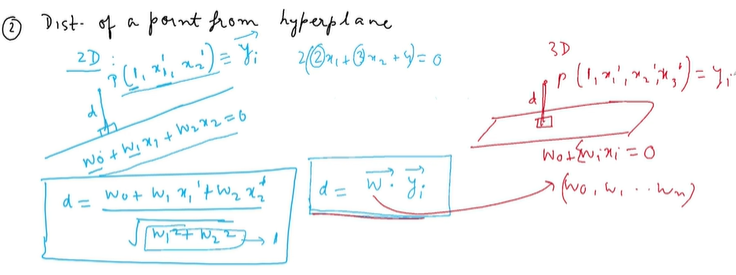 ② Dist. of a point from hyperplane
2D :
P(1, x₁', x₂') ≡ y⃗ᵢ
2(2x₁ + 3x₂ + 4) = 0
d
w₀ + w₁x₁ + w₂x₂ = 0
d = w₀ + w₁ x₁' + w₂ x₂' / √(w₁² + w₂²) → 1
d = w⃗ · y⃗ᵢ
3D
P (1, x₁', x₂', x₃') = yᵢ
d
w₀ + Σwᵢxᵢ = 0
(w₀, w₁ ... wₙ)